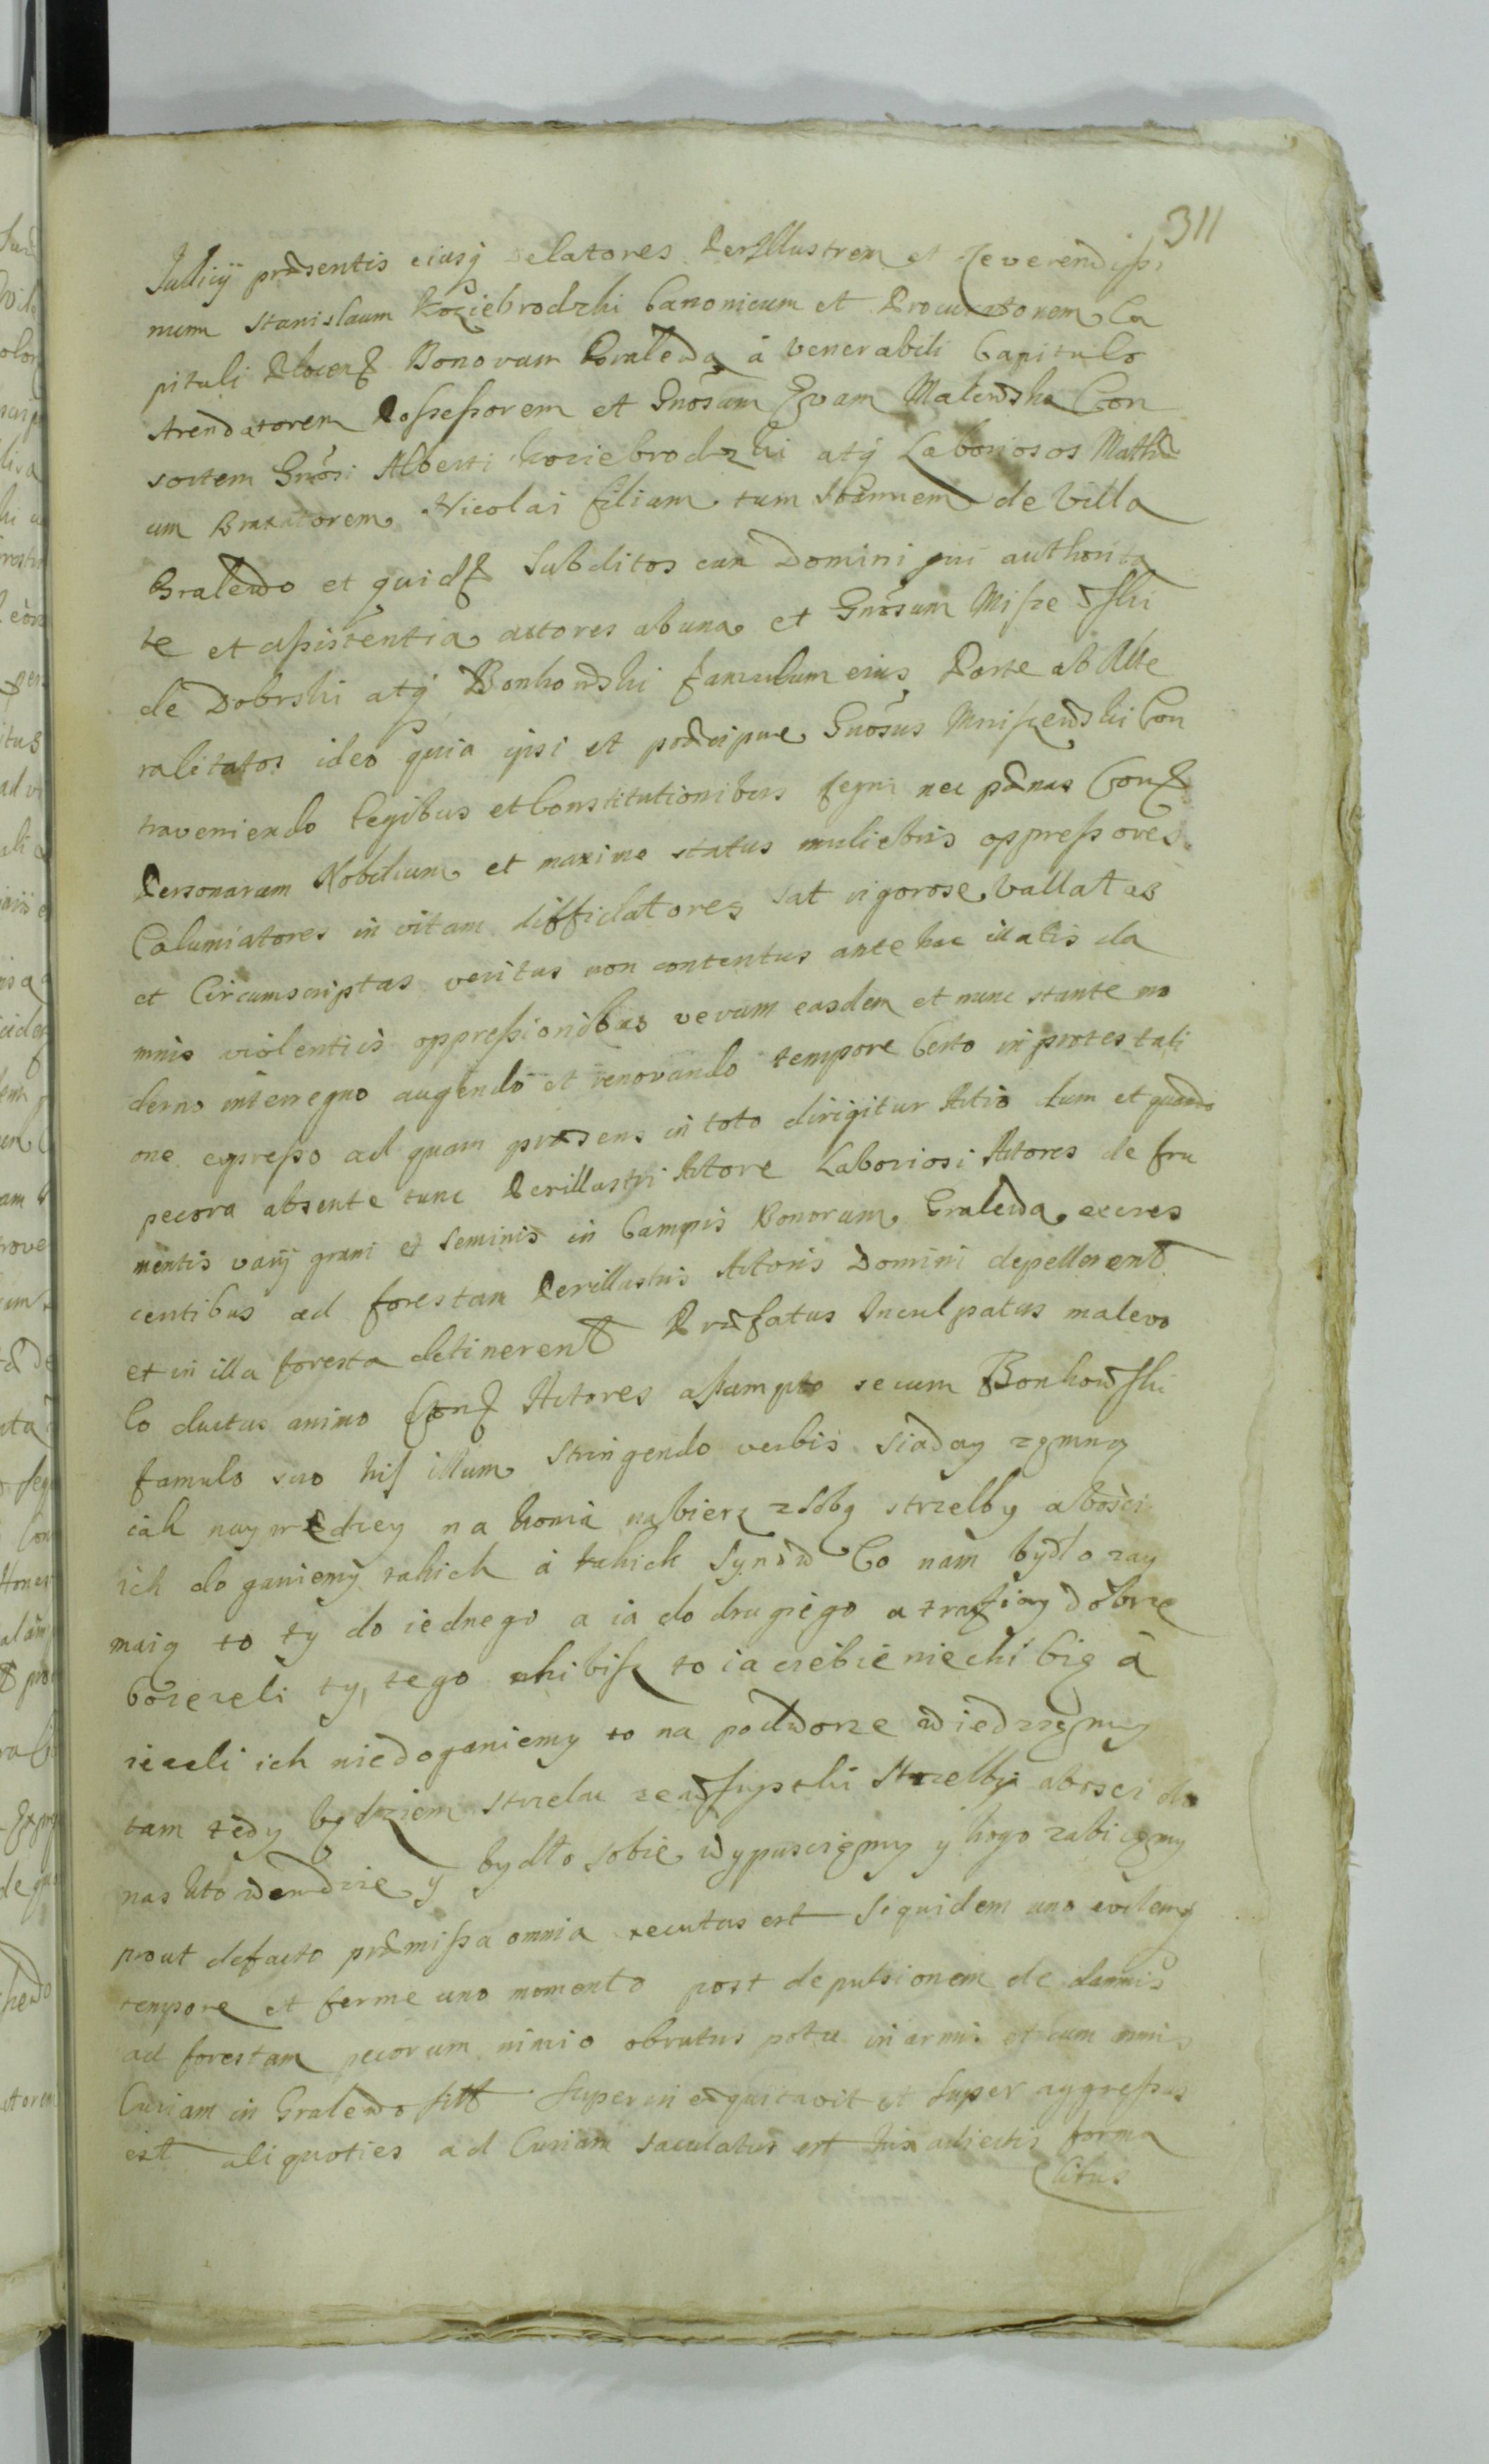 311
Iudicij præsentis eiusq delatores PerIllustrem et Reverendissi
mum Stanislaum Koziebrodzki Canonicum et Procuratorem Ca
pituli Plocen Bonorum Gralewa à Venerabili Capitulo
Arendatorem Possessorem et Gnosam Evam Malewska Con
sortem Gnosi Alberti Koziebrodzki atq Laboriosos Mathæ
um Braxatorem Nicolai filium tum Ioannem de Villa
Gralewo et quid Subditos eau Domini sui authorita
te et assistentia actores ab una et Gnosum Miszewski
de Dobrski atq Bonkowski famulum eius Parte ab Alte
ra litatos ideo quia ipsi et præcipue Gnosus Mniszewski Con
traveniendo legibus et Constitutionibus Regni nec pænas Con
Personarum Nobilium et maxime status muliebris oppressores
Calumiatores in vitam diffidatores sat rigorose vallatas
et Circumscriptas veritus non contentus ante hac illatis da
mnis violentiis oppressionibus verum easdem et nunc stante mo
derno interregno augendo et renovando tempore Certo in protestati
one expresso ad quam præsens in toto dirigitur Actio dum et quando
pecora absente tunc Perillustri Actore Laboriosi Actores de fru
mentis varij grani et Seminis in Campis Bonorum Gralewa excres
centibus ad forestam Perillustris Actoris Domini depellerent
et in illa foresta detinerent Præfatus Inculpatus malevo
lo ductus animo Con Actores assumpto secum Bonkowski
famulo suo his illum stringendo verbis siaday zemną
iak nayprędzey na konia nabierz z Sobą strzelby abosci
ich doganiemy takich à takich Synow Co nam bydło zay
maią to ty do iednego a ia do drugiego a trafiay dobrze
bo iezeli ty, tego chibisz to ia ciebie niechibię à
iezeli ich niedoganiemy to na podworze wiedziemy
tam tedy będziem strzelac ze wszystki Strzelby abosci do
nas kto wendzie y bydło sobie wypusciemy y kogo zabiiemy
prout de facto præmissa omnia secutus est Siquidem uno eodemq
tempore et ferme uno momento post depulsionem de damnis
ad forestam pecorum nimio obrutus potu in armis et cum armis
Curiam in Gralewo sitt Superinequitavit et Super aggressus
est aliquoties ad Curiam Iaculatus est his adiectis forma
litus